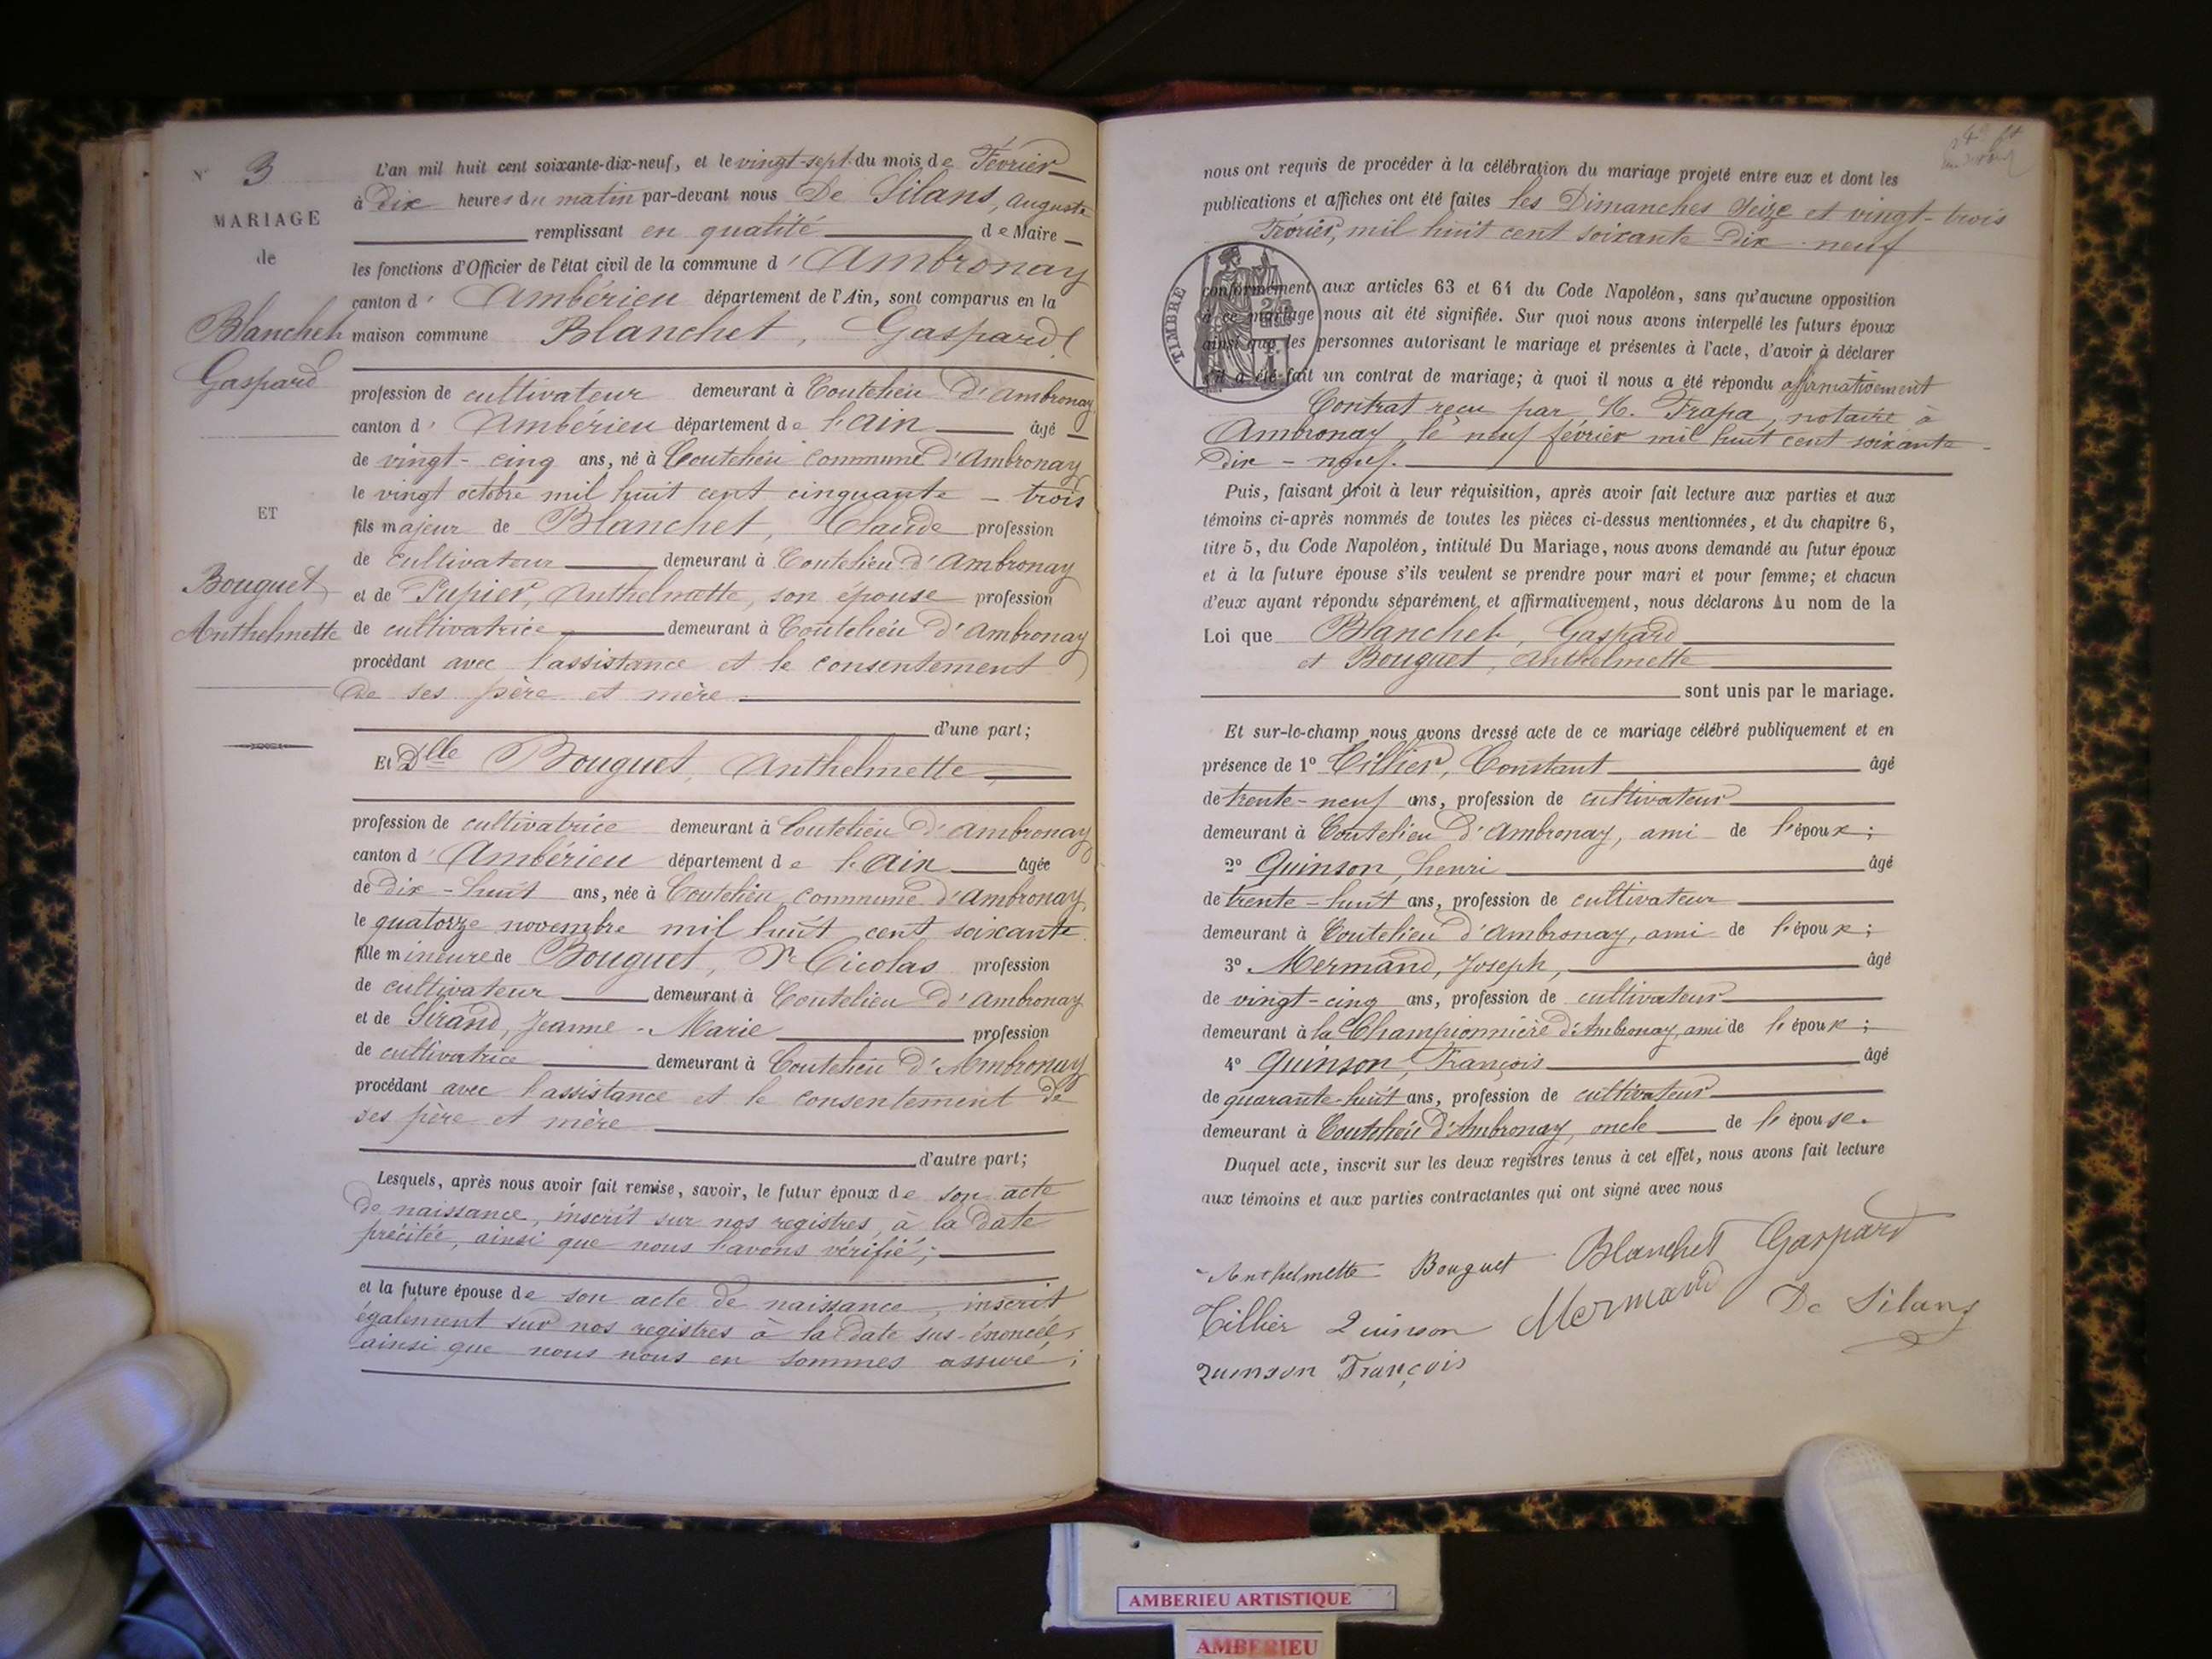 N° 3
MARIAGE
de
Blanchet
Gaspard
ET
Bouguet
Anthelmette
L'an mil huit cent soixante-dix-neuf, et le vingt-sept du mois de Février
à Dix heures du matin par-devant nous De Silans, Auguste
remplissant en qualité de Maire
les fonctions d'Officier de l'état civil de la commune d'Ambronay
canton d'Ambérieu département de l'Ain, sont comparus en la
maison commune Blanchet, Gaspard
profession de cultivateur demeurant à Coutelieu d'Ambronay
canton d'Ambérieu département de l'Ain âgé
de vingt-cinq ans, né à Coutelieu commune d'Ambronay
le vingt octobre mil huit cent cinquante-trois
fils majeur de Blanchet, Claude profession
de cultivateur demeurant à Coutelieu d'Ambronay
et de Pupier, Anthelmette, son épouse profession
de cultivatrice demeurant à Coutelieu d'Ambronay
procédant avec l'assistance et le consentement
de ses père et mère
d'une part;
Et Dlle Bouguet, Anthelmette,
profession de cultivatrice demeurant à Coutelieu d'Ambronay
canton d'Ambérieu département de l'Ain âgée
de Dix-huit ans, née à Coutelieu, commune d'Ambronay,
le quatorze novembre mil huit cent soixante
fille mineure de Bouguet, Cicolas profession
de cultivateur demeurant à Coutelieu d'Ambronay
et de Girand, Jeanne-Marie profession
de cultivatrice demeurant à Coutelieu d'Ambronay
procédant avec l'assistance et le consentement de
ses père et mère
d'autre part;
Lesquels, après nous avoir fait remise, savoir, le futur époux de son acte
de naissance, inscrit sur nos registres, à la date
précitée, ainsi que nous l'avons vérifié;
et la future épouse de son acte de naissance, inscrit
également sur nos registres à la date sus-énoncée,
ainsi que nous nous en sommes assuré;
nous ont requis de procéder à la célébration du mariage projeté entre eux et dont les
publications et affiches ont été faites les Dimanches Seize et vingt-trois
Février, mil huit cent soixante Dix-neuf
TIMBRE
conformément aux articles 63 et 64 du Code Napoléon, sans qu'aucune opposition
à ce mariage nous ait été signifiée. Sur quoi nous avons interpellé les futurs époux
ainsi que les personnes autorisant le mariage et présentes à l'acte, d'avoir à déclarer
s'il a été fait un contrat de mariage; à quoi il nous a été répondu affirmativement
Contrat reçu par M. Trapa, notaire à
Ambronay, le neuf février mil huit cent soixante-
Dix-neuf.
Puis, faisant droit à leur réquisition, après avoir fait lecture aux parties et aux
témoins ci-après nommés de toutes les pièces ci-dessus mentionnées, et du chapitre 6,
titre 5, du Code Napoléon, intitulé Du Mariage, nous avons demandé au futur époux
et à la future épouse s'ils veulent se prendre pour mari et pour femme; et chacun
d'eux ayant répondu séparément et affirmativement, nous déclarons Au nom de la
Loi que Blanchet, Gaspard
et Bouguet, Anthelmette
sont unis par le mariage.
Et sur-le-champ nous avons dressé acte de ce mariage célébré publiquement et en
présence de 1° Tillier, Constant âgé
de trente-neuf ans, profession de cultivateur
demeurant à Coutelieu d'Ambronay, ami de l'époux;
2° Quinson, henri âgé
de trente-huit ans, profession de cultivateur
demeurant à Coutelieu d'Ambronay, ami de l'époux;
3° Mermand, Joseph, âgé
de vingt-cinq ans, profession de cultivateur
demeurant à la Championnière d'Ambronay, ami de l'époux;
4° Quinson, François âgé
de quarante-huit ans, profession de cultivateur
demeurant à Coutelieu d'Ambronay, oncle de l'épouse.
Duquel acte, inscrit sur les deux registres tenus à cet effet, nous avons fait lecture
aux témoins et aux parties contractantes qui ont signé avec nous
Anthelmette Bouguet Blanchet Gaspard
Tillier Quinson Mermand De Silans
Quinson François
AMBERIEU ARTISTIQUE
AMBERIEU